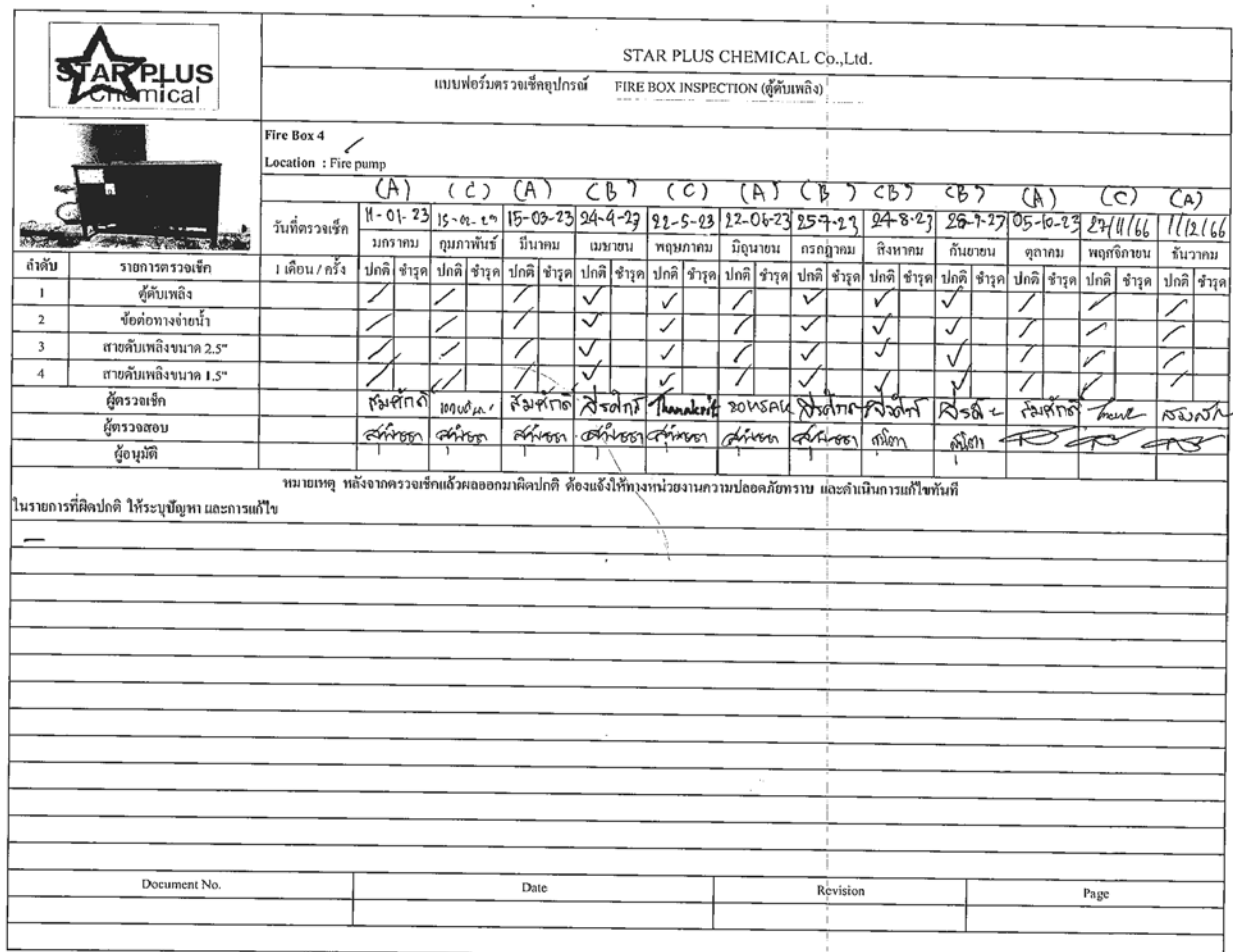 STAR PLUS
Chemical
STAR PLUS CHEMICAL Co.,Ltd.
แบบฟอร์มตรวจเช็คอุปกรณ์ FIRE BOX INSPECTION (ตู้ดับเพลิง)
Fire Box 4
Location : Fire pump
(A) (C) (A) (B) (C) (A) (B) (B) (B) (A) (C) (A)
วันที่ตรวจเช็ค 11-01-23 15-02-23 15-03-23 24-4-23 22-5-23 22-06-23 25-7-23 24-8-23 05-10-23 27/11/66 1/12/66
มกราคม กุมภาพันธ์ มีนาคม เมษายน พฤษภาคม มิถุนายน กรกฎาคม สิงหาคม กันยายน ตุลาคม พฤศจิกายน ธันวาคม
ลำดับ รายการตรวจเช็ค 1 เดือน / ครั้ง ปกติ ชำรุด ปกติ ชำรุด ปกติ ชำรุด ปกติ ชำรุด ปกติ ชำรุด ปกติ ชำรุด ปกติ ชำรุด ปกติ ชำรุด ปกติ ชำรุด ปกติ ชำรุด ปกติ ชำรุด ปกติ ชำรุด
1 ตู้ดับเพลิง ✓ ✓ ✓ ✓ ✓ ✓ ✓ ✓ ✓ ✓ ✓ ✓
2 ข้อต่อทางจ่ายน้ำ ✓ ✓ ✓ ✓ ✓ ✓ ✓ ✓ ✓ ✓ ✓ ✓
3 สายดับเพลิงขนาด 2.5" ✓ ✓ ✓ ✓ ✓ ✓ ✓ ✓ ✓ ✓ ✓ ✓
4 สายดับเพลิงขนาด 1.5" ✓ ✓ ✓ ✓ ✓ ✓ ✓ ✓ ✓ ✓ ✓ ✓
ผู้ตรวจเช็ค สมศักดิ์ สมศักดิ์ Thanakrit สมศักดิ์
ผู้ตรวจสอบ
ผู้อนุมัติ
หมายเหตุ หลังจากตรวจเช็คแล้วผลออกมาผิดปกติ ต้องแจ้งให้ทางหน่วยงานความปลอดภัยทราบ และดำเนินการแก้ไขทันที
ในรายการที่ผิดปกติ ให้ระบุปัญหา และการแก้ไข
–
Document No. Date Revision Page